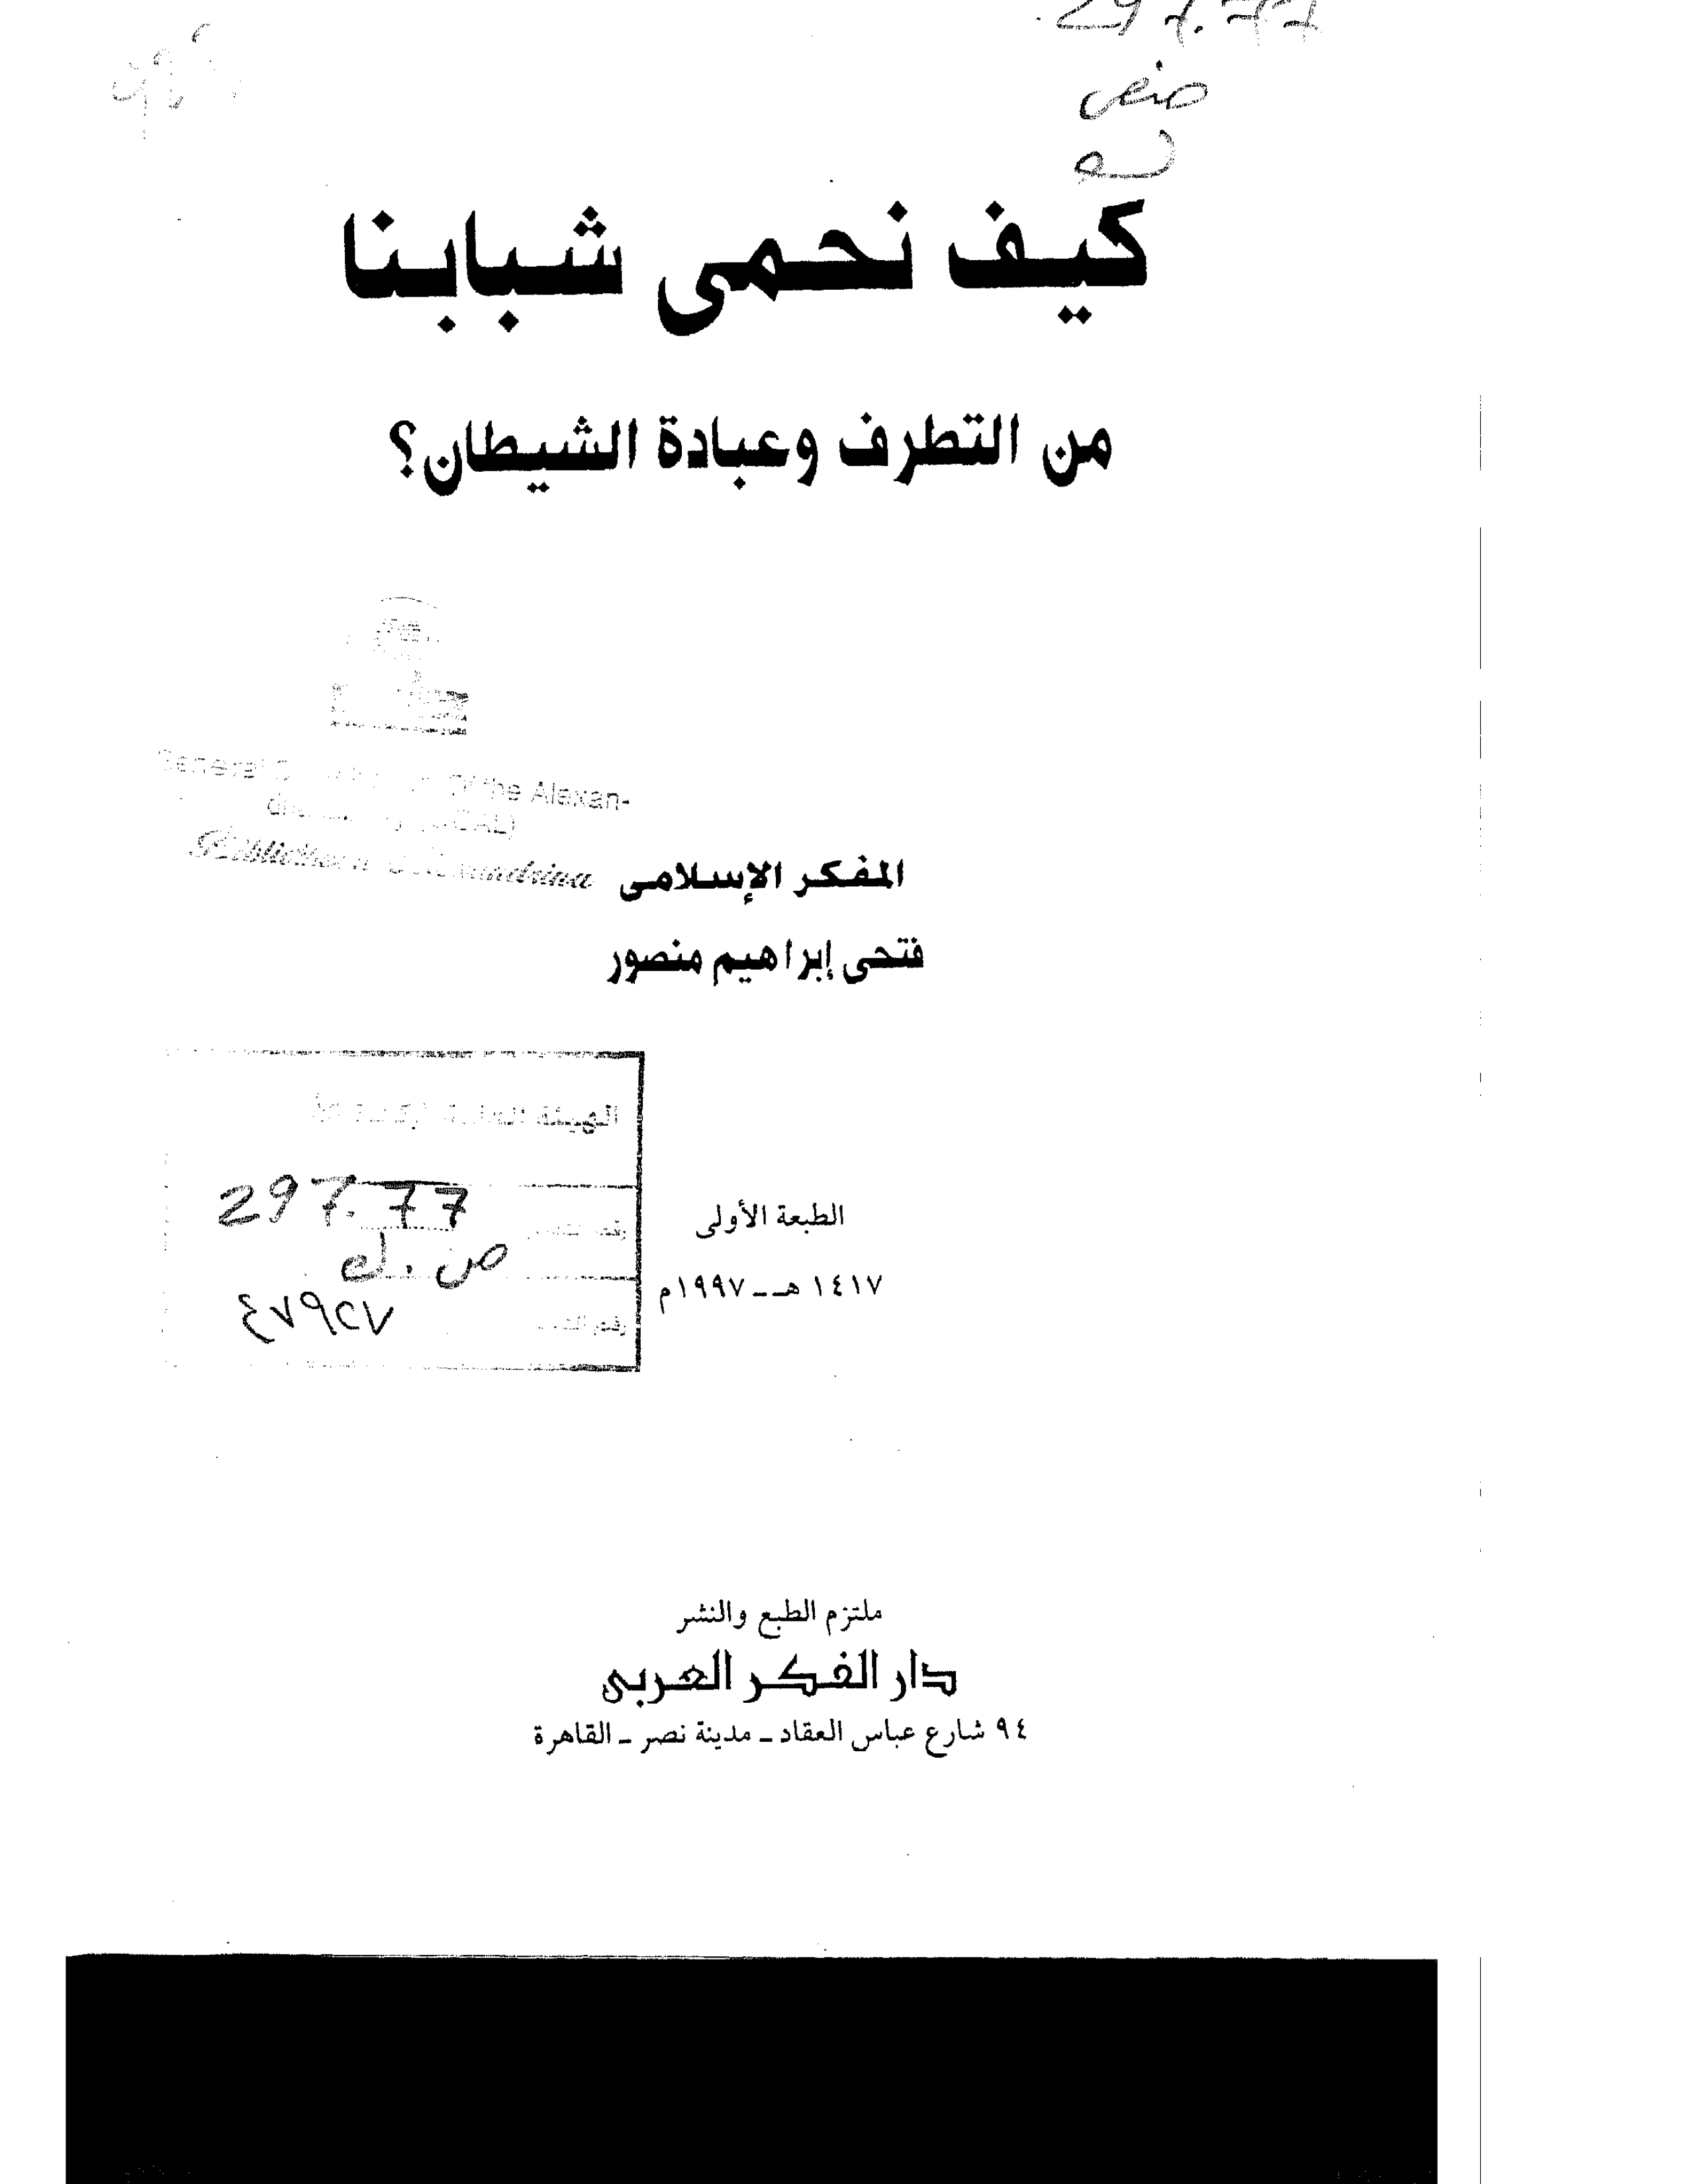 297.77
كيف نحمى شبابنا
من التطرف وعبادة الشيطان؟
General of the Alexan-
Bibliotheca Alexandrina
المفكر الإسلامى
فتحى إبراهيم منصور
الهيئة
297.77
رقم
ص.ك
٤٧٩٢٧
رقم
الطبعة الأولى
١٤١٧ هـ - ١٩٩٧م
ملتزم الطبع والنشر
دار الفكر العربى
٩٤ شارع عباس العقاد - مدينة نصر - القاهرة